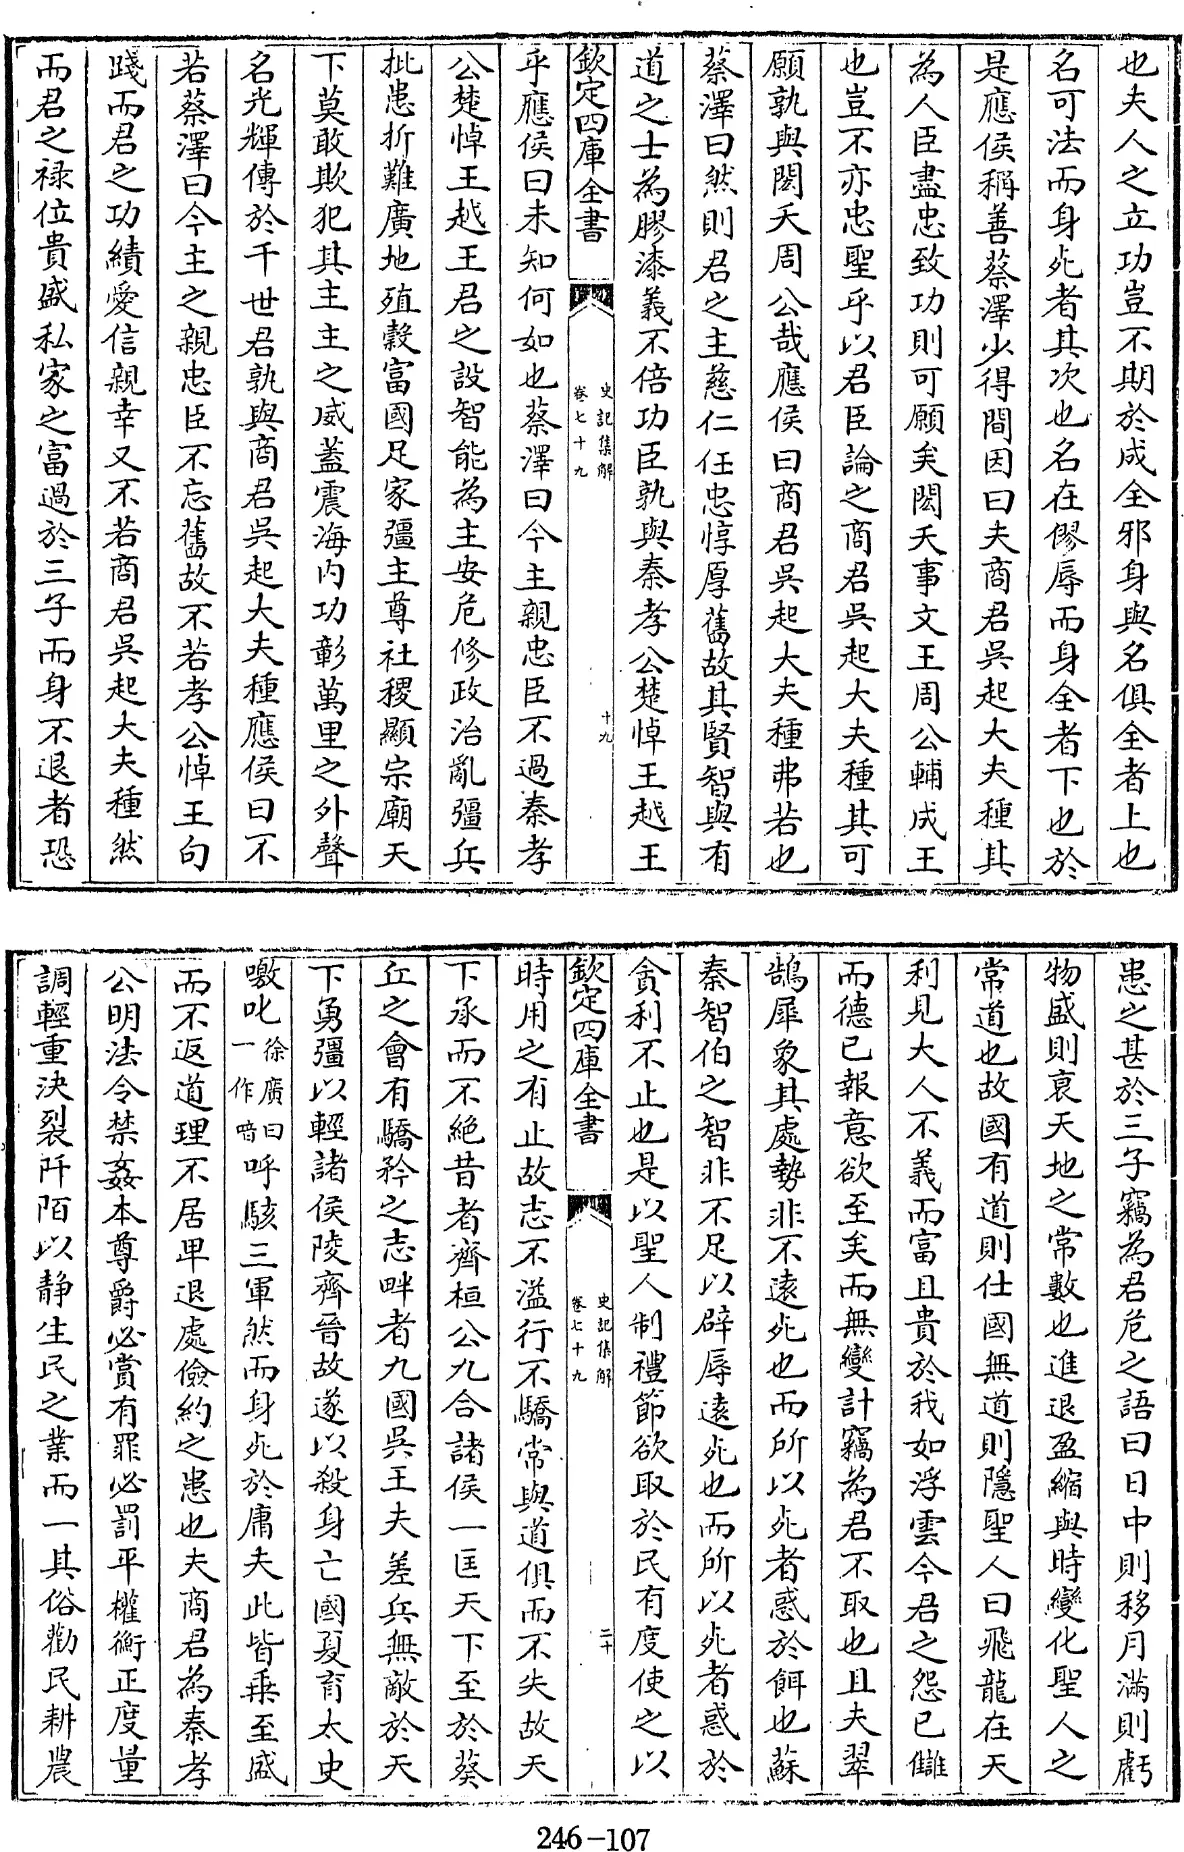 也夫人之立功豈不期於成全邪身與名俱全者上也
名可法而身死者其次也名在僇辱而身全者下也於
是應侯稱善蔡澤少得間因曰夫商君吳起大夫種其
為人臣盡忠致功則可願矣閎夭事文王周公輔成王
也豈不亦忠聖乎以君臣論之商君吳起大夫種其可
願孰與閎夭周公哉應侯曰商君吳起大夫種弗若也
蔡澤曰然則君之主慈仁任忠惇厚舊故其賢智與有
道之士為膠漆義不倍功臣孰與秦孝公楚悼王越王
欽定四庫全書
史記集解
卷七十九
十九
乎應侯曰未知何如也蔡澤曰今主親忠臣不過秦孝
公楚悼王越王君之設智能為主安危修政治亂彊兵
批患折難廣地殖穀富國足家彊主尊社稷顯宗廟天
下莫敢欺犯其主主之威蓋震海内功彰萬里之外聲
名光輝傳於千世君孰與商君吳起大夫種應侯曰不
若蔡澤曰今主之親忠臣不忘舊故不若孝公悼王句
踐而君之功績愛信親幸又不若商君吳起大夫種然
而君之禄位貴盛私家之富過於三子而身不退者恐
患之甚於三子竊為君危之語曰日中則移月滿則虧
物盛則衰天地之常數也進退盈縮與時變化聖人之
常道也故國有道則仕國無道則隱聖人曰飛龍在天
利見大人不義而富且貴於我如浮雲今君之怨已讎
而德已報意欲至矣而無變計竊為君不取也且夫翠
鵠犀象其處勢非不遠死也而所以死者惑於餌也蘇
秦智伯之智非不足以辟辱遠死也而所以死者惑於
貪利不止也是以聖人制禮節欲取於民有度使之以
欽定四庫全書
史記集解
卷七十九
二十
時用之有止故志不溢行不驕常與道俱而不失故天
下承而不絶昔者齊桓公九合諸侯一匡天下至於葵
丘之會有驕矜之志畔者九國吳王夫差兵無敵於天
下勇彊以輕諸侯陵齊晉故遂以殺身亡國夏育太史
噭叱徐廣曰一作喑呼駭三軍然而身死於庸夫此皆乗至盛
而不返道理不居卑退處儉約之患也夫商君為秦孝
公明法令禁姦本尊爵必賞有罪必罰平權衡正度量
調輕重決裂阡陌以静生民之業而一其俗勸民耕農
246-107